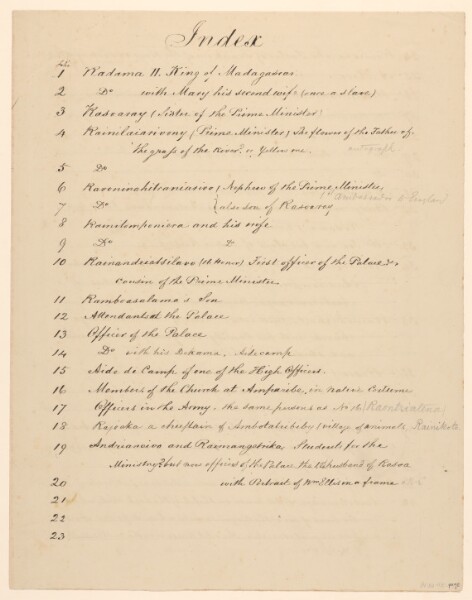 Index
No.
1 Radama II. King of Madagascar
2 Do with Mary his second wife (once a slave)
3 Rasoaray (Sister of the Prime Minister)
4 Rainilaiarivony (Prime Minister) The flower of the Father of
the grass of the River, or Yellow one.
5 Do
6 (Nephew of the Prime Minister,
7 Do (also son of Rasoaray) Ambassador to England
8 and his wife
9 Do Do
10 First officer of the Palace &c,
cousin of the Prime Minister
11 Ramboasalama's Son
12 Attendants at the Palace
13 Officer of the Palace
14 Do with his Aidecamp
15 Aide de Camp of one of the High Officers.
16 Members of the Church at Amparibe, in native Costume
17 Officers in the Army. the same person as No
18 Rajoaka a chieftain of (village of animals,
19 and Students for the
Ministry but now officers of the Palace, the husband of Rasoa
20 with Portrait of Wm Ellis in a frame
21
22
23